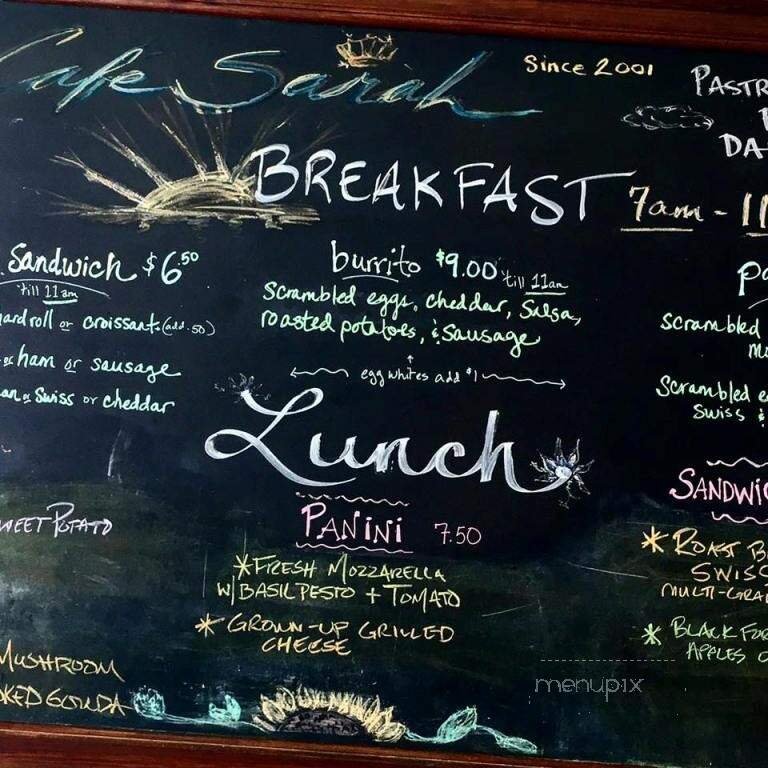 Cafe Sarah
Since 2001
BREAKFAST 7am - 11
Sandwich $6.50
'till 11am
hard roll or croissant (add .50)
ham or sausage
Swiss or cheddar
burrito $9.00 'till 11am
Scrambled eggs, cheddar, Salsa,
roasted potatoes, & Sausage
egg whites add $1
Scrambled
Scrambled
Swiss &
Lunch
SWEET POTATO
MUSHROOM
PANINI 7.50
*FRESH MOZZARELLA
W/ BASIL PESTO + TOMATO
* GROWN-UP GRILLED
CHEESE
* ROAST
SWISS
* BLACK
APPLES
menupix